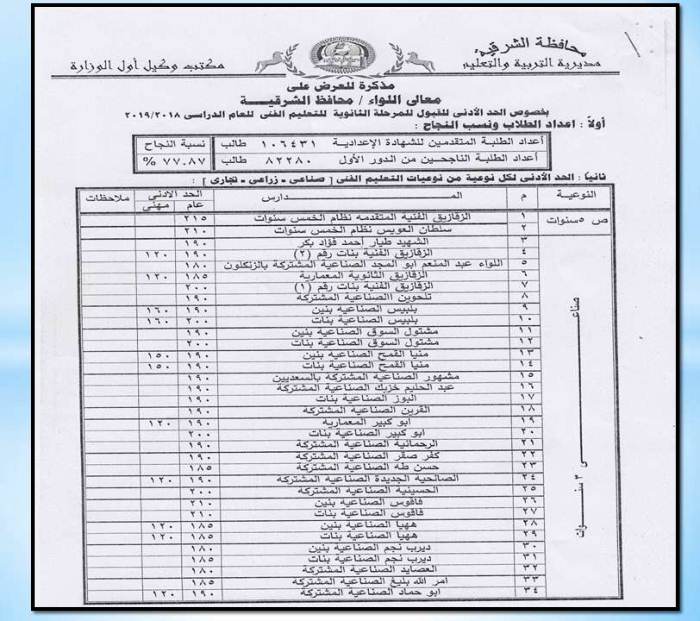 محافظة الشرقية
مديرية التربية والتعليم
مكتب وكيل أول الوزارة
مذكرة للعرض على
معالى اللواء / محافظ الشرقيـــة
بخصوص الحد الأدنى للقبول للمرحلة الثانوية للتعليم الفنى للعام الدراسى ٢٠١٩/٢٠١٨
أولاً : اعداد الطلاب ونسب النجاح :
أعداد الطلبة المتقدمين للشهادة الإعدادية ١٠٦٤٣١ طالب نسبة النجاح
أعداد الطلبة الناجحين من الدور الأول ٨٢٢٨٠ طالب ٧٧.٨٧ %
ثانياً : الحد الأدنى لكل نوعية من نوعيات التعليم الفنى [ صناعى - زراعى - تجارى ] :
النوعية م المــدارس الحد الأدنى ملاحظات
عام مهنى
ص ٥ سنوات ١ الزقازيق الفنية المتقدمه نظام الخمس سنوات ٢١٥
٢ سلطان العويس نظام الخمس سنوات ٢١٠
صناعى ٣ سنوات
٣ الشهيد طيار أحمد فؤاد بكر ١٩٠
٤ الزقازيق الفنية بنات رقم (٢) ١٩٠ ١٢٠
٥ اللواء عبد المنعم أبو المجد الصناعية المشتركة بالزنكلون ١٨٠
٦ الزقازيق الثانوية المعمارية ١٨٥ ١٢٠
٧ الزقازيق الفنية بنات رقم (١) ٢٠٠
٨ تلحوين الصناعية المشتركة ١٩٠
٩ بلبيس الصناعية بنين ١٩٠ ١٦٠
١٠ بلبيس الصناعية بنات ٢٠٠ ١٦٠
١١ مشتول السوق الصناعية بنين ١٩٠
١٢ مشتول السوق الصناعية بنات ١٩٠
١٣ منيا القمح الصناعية بنين ١٩٠ ١٥٠
١٤ منيا القمح الصناعية بنات ١٩٠ ١٥٠
١٥ مشهور الصناعية المشتركة بالسعديين ١٩٠
١٦ عبد الحليم خزبك الصناعية المشتركة ١٩٠
١٧ البوز الصناعية بنات ١٩٠
١٨ القرين الصناعية المشتركة ١٩٠
١٩ ابو كبير المعمارية ١٩٠ ١٢٠
٢٠ ابو كبير الصناعية بنات ٢٠٠
٢١ الرحمانية الصناعية المشتركة ١٩٠
٢٢ كفر صقر الصناعية المشتركة ١٩٠
٢٣ حسن طه الصناعية المشتركة ١٨٥
٢٤ الصالحية الجديدة الصناعية المشتركة ١٩٠ ١٢٠
٢٥ الحسينية الصناعية المشتركة ٢٠٠
٢٦ فاقوس الصناعية بنين ٢١٠
٢٧ فاقوس الصناعية بنات ٢١٠
٢٨ ههيا الصناعية بنين ١٨٥ ١٢٠
٢٩ ههيا الصناعية بنات ١٨٥ ١٢٠
٣٠ ديرب نجم الصناعية بنين ١٨٠
٣١ ديرب نجم الصناعية بنات ١٨٥
٣٢ العصايد الصناعية المشتركة ١٨٠
٣٣ امر الله بليغ الصناعية المشتركة ١٨٥
٣٤ ابو حماد الصناعية المشتركة ١٩٠ ١٢٠